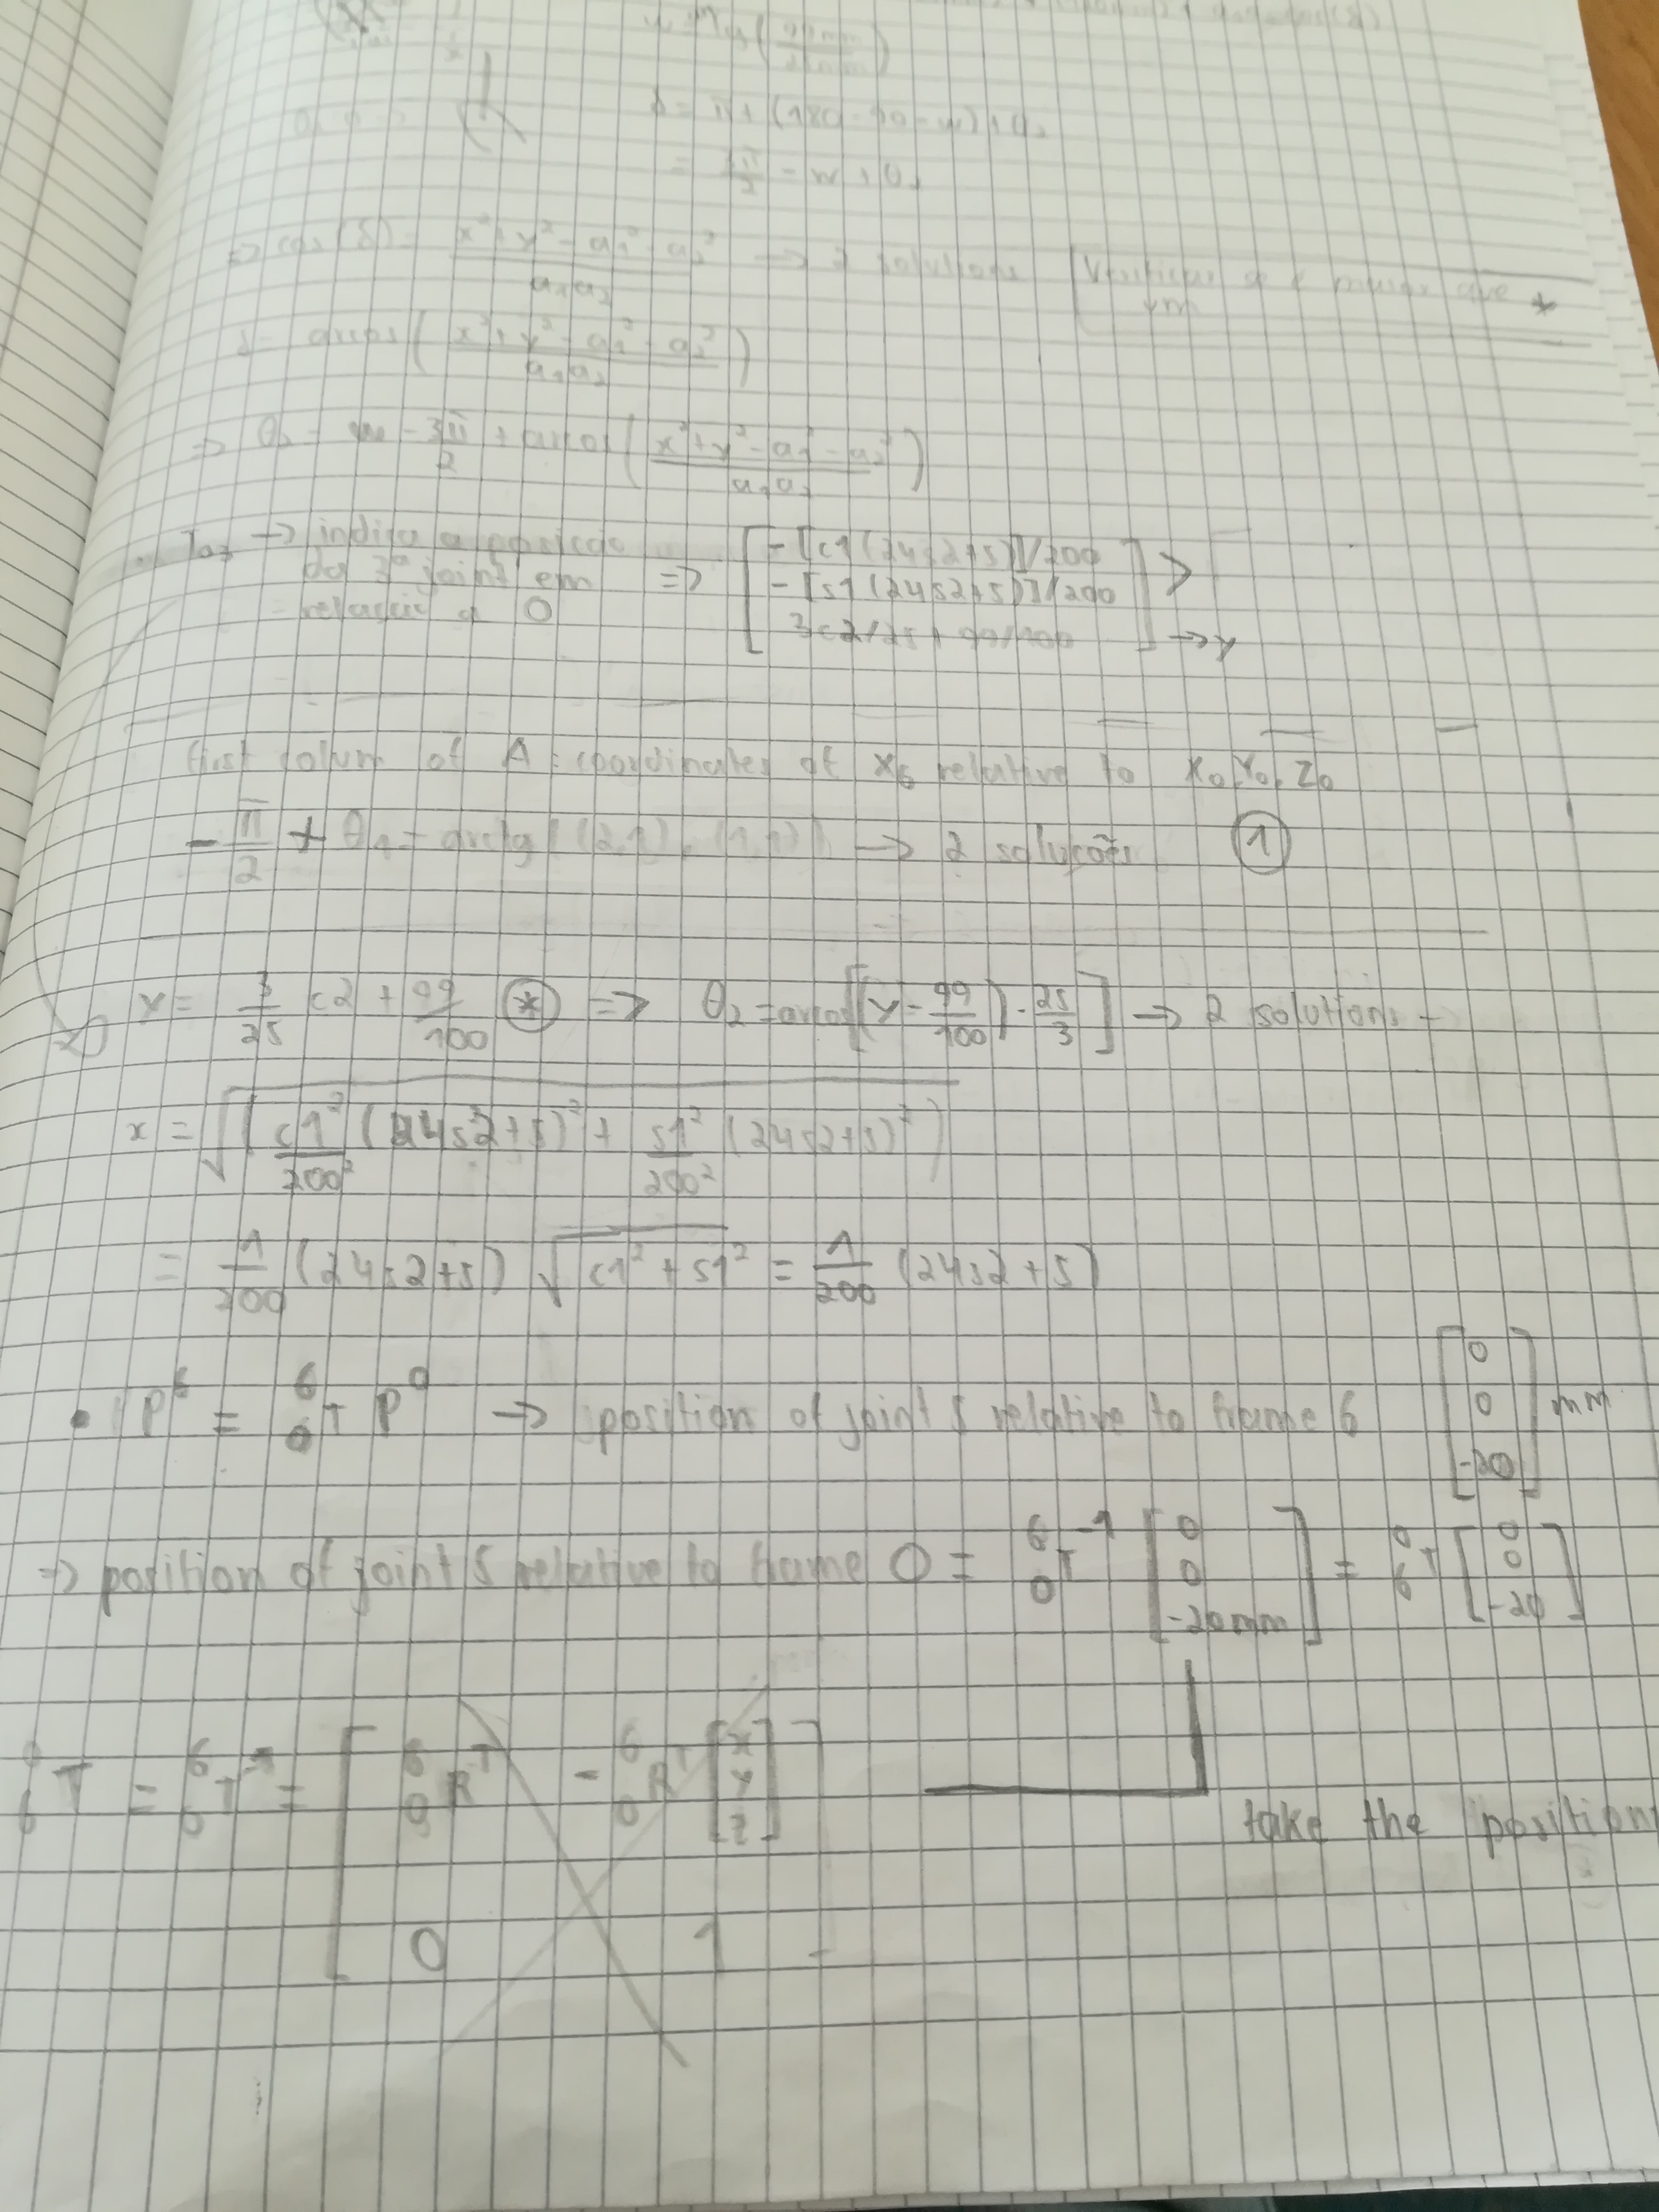 w = tg ( 99mm / 21mm )
δ = π + (180 - 90 - w) + θ₂
= 3π/2 - w + θ₂
=> cos(δ) = (x² + y² - a₁² - a₂²) / a₁a₂ -> 2 solutions
δ = arcos( (x² + y² - a₁² - a₂²) / a₁a₂ )
=> θ₂ = w - 3π/2 + arcos( (x² + y² - a₁² - a₂²) / a₁a₂ )
-> indica a posição da 3ª joint em relação a 0 => [ - [c1(24s2+5)]/200
- [s1(24s2+5)]/200
3c2/25 + 99/100 ] -> y
first colum of A : coordinates of x₆ relative to x₀, y₀, z₀
- π/2 + θ₁ = arctg( (2,1), (1,1) ) -> 2 soluções ①
y = 3/25 c2 + 99/100 ⊛ => θ₂ = arcos[ (y - 99/100) · 25/3 ] -> 2 solutions
x = √( c1²/200² (24s2+5)² + s1²/200² (24s2+5)² )
= 1/200 (24s2+5) √(c1² + s1²) = 1/200 (24s2+5)
• P⁶ = ⁶₀T P⁰ -> position of joint 5 relative to frame 6 [ 0 0 -20 ] mm
=> position of joint 5 relative to frame 0 = ⁶₀T⁻¹ [ 0 0 -20mm ] = ⁰₆T [ 0 0 -20 ]
⁰₆T = ⁶₀T⁻¹ = [ ⁶₀Rᵀ - ⁶₀Rᵀ [ x y z ]
0 1 ]
take the position